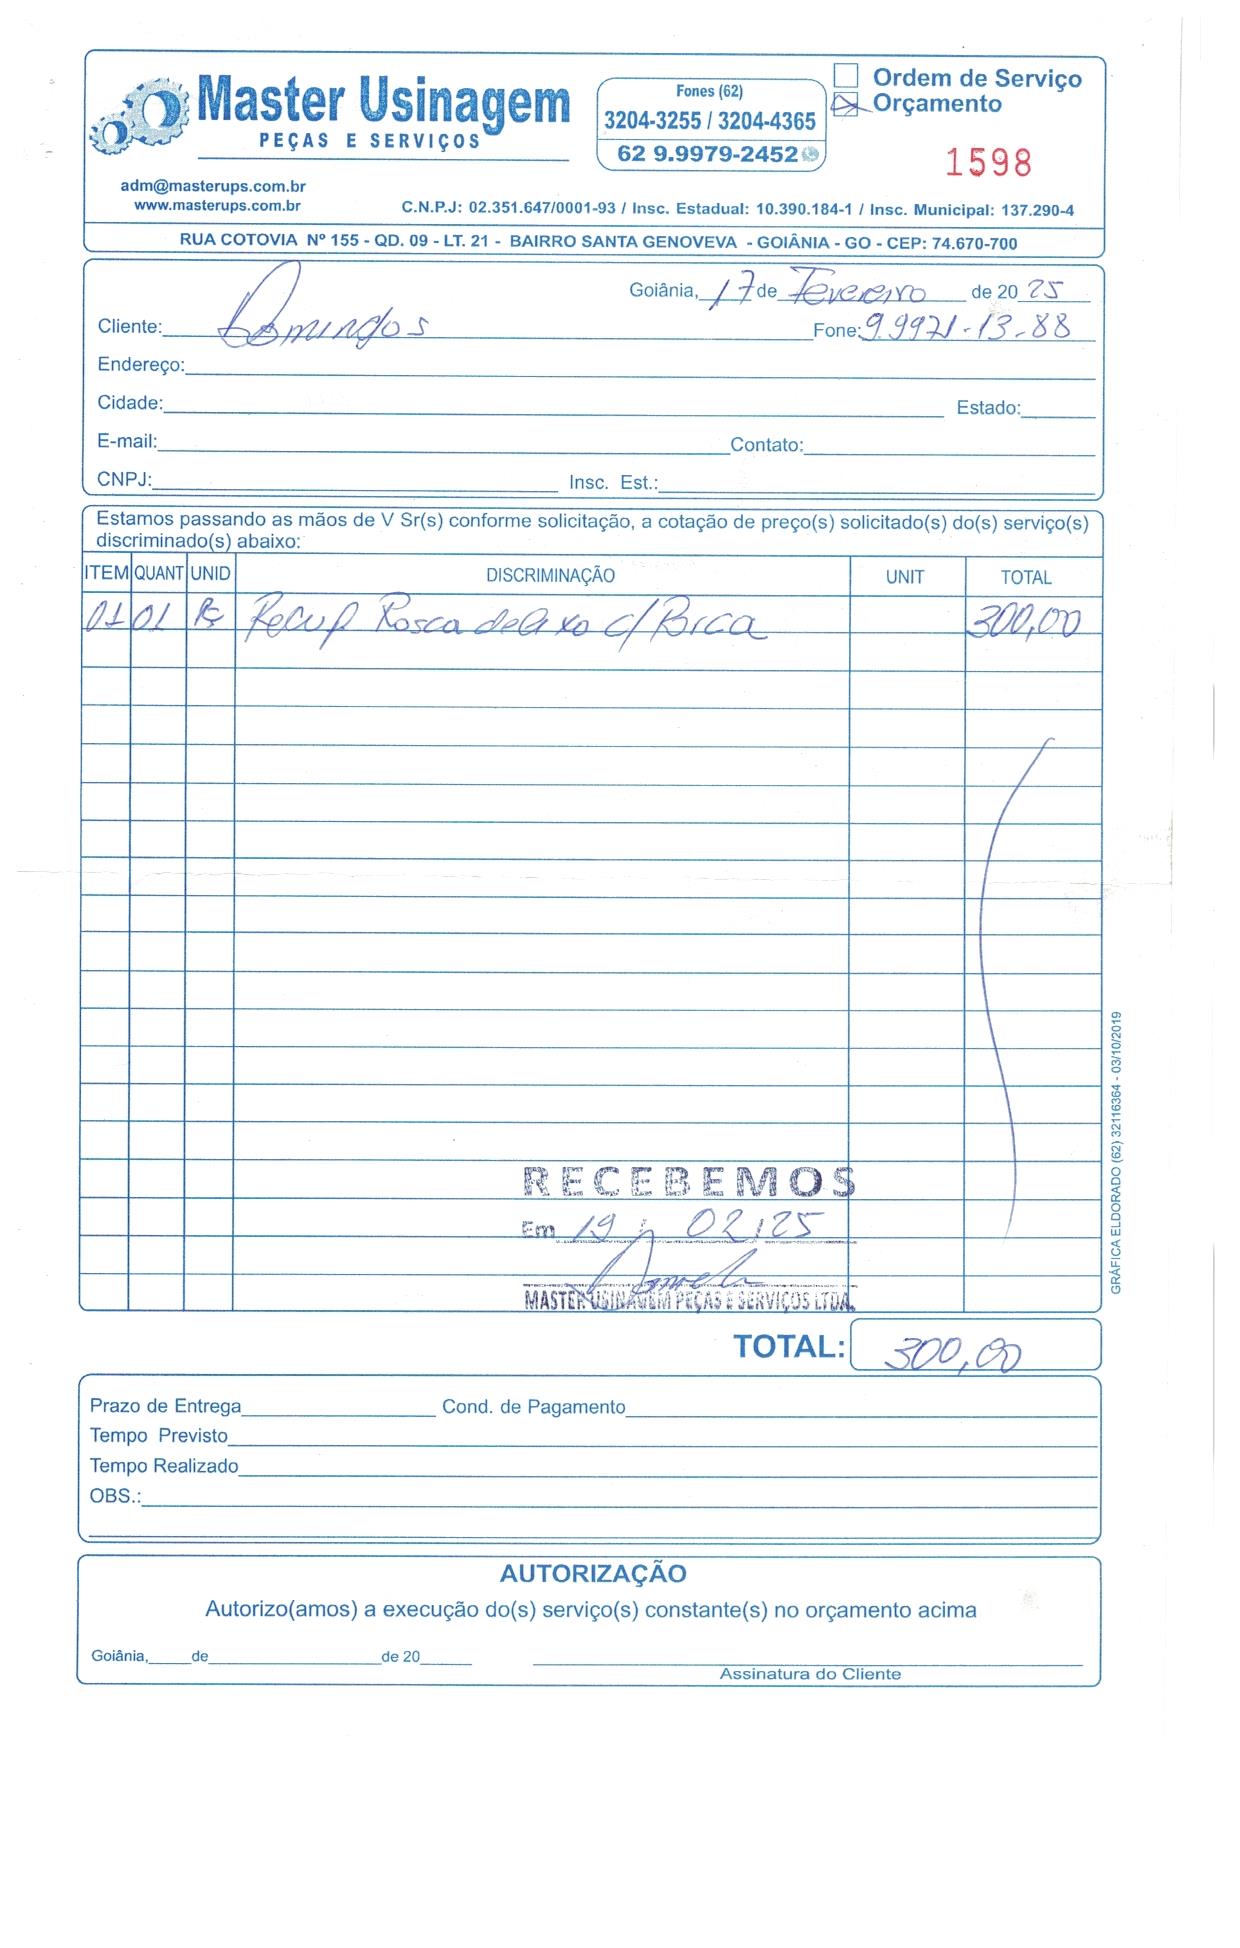 Master Usinagem
PEÇAS E SERVIÇOS
adm@masterups.com.br
www.masterups.com.br
Fones (62)
3204-3255 / 3204-4365
62 9.9979-2452
Ordem de Serviço
Orçamento
1598
C.N.P.J: 02.351.647/0001-93 / Insc. Estadual: 10.390.184-1 / Insc. Municipal: 137.290-4
RUA COTOVIA Nº 155 - QD. 09 - LT. 21 - BAIRRO SANTA GENOVEVA - GOIÂNIA - GO - CEP: 74.670-700
Goiânia, 17 de Fevereiro de 20 25
Cliente: Domingos Fone: 9.9971-13-88
Endereço:
Cidade: Estado:
E-mail: Contato:
CNPJ: Insc. Est.:
Estamos passando as mãos de V Sr(s) conforme solicitação, a cotação de preço(s) solicitado(s) do(s) serviço(s)
discriminado(s) abaixo:
ITEM QUANT UNID DISCRIMINAÇÃO UNIT TOTAL
01 01 Pç Recup Rosca de Eixo c/ Porca 300,00
RECEBEMOS
Em 19 / 02 / 25
MASTER USINAGEM PEÇAS E SERVIÇOS LTDA.
TOTAL: 300,00
Prazo de Entrega Cond. de Pagamento
Tempo Previsto
Tempo Realizado
OBS.:
AUTORIZAÇÃO
Autorizo(amos) a execução do(s) serviço(s) constante(s) no orçamento acima
Goiânia, de de 20
Assinatura do Cliente
GRÁFICA ELDORADO (62) 32116364 - 03/10/2019